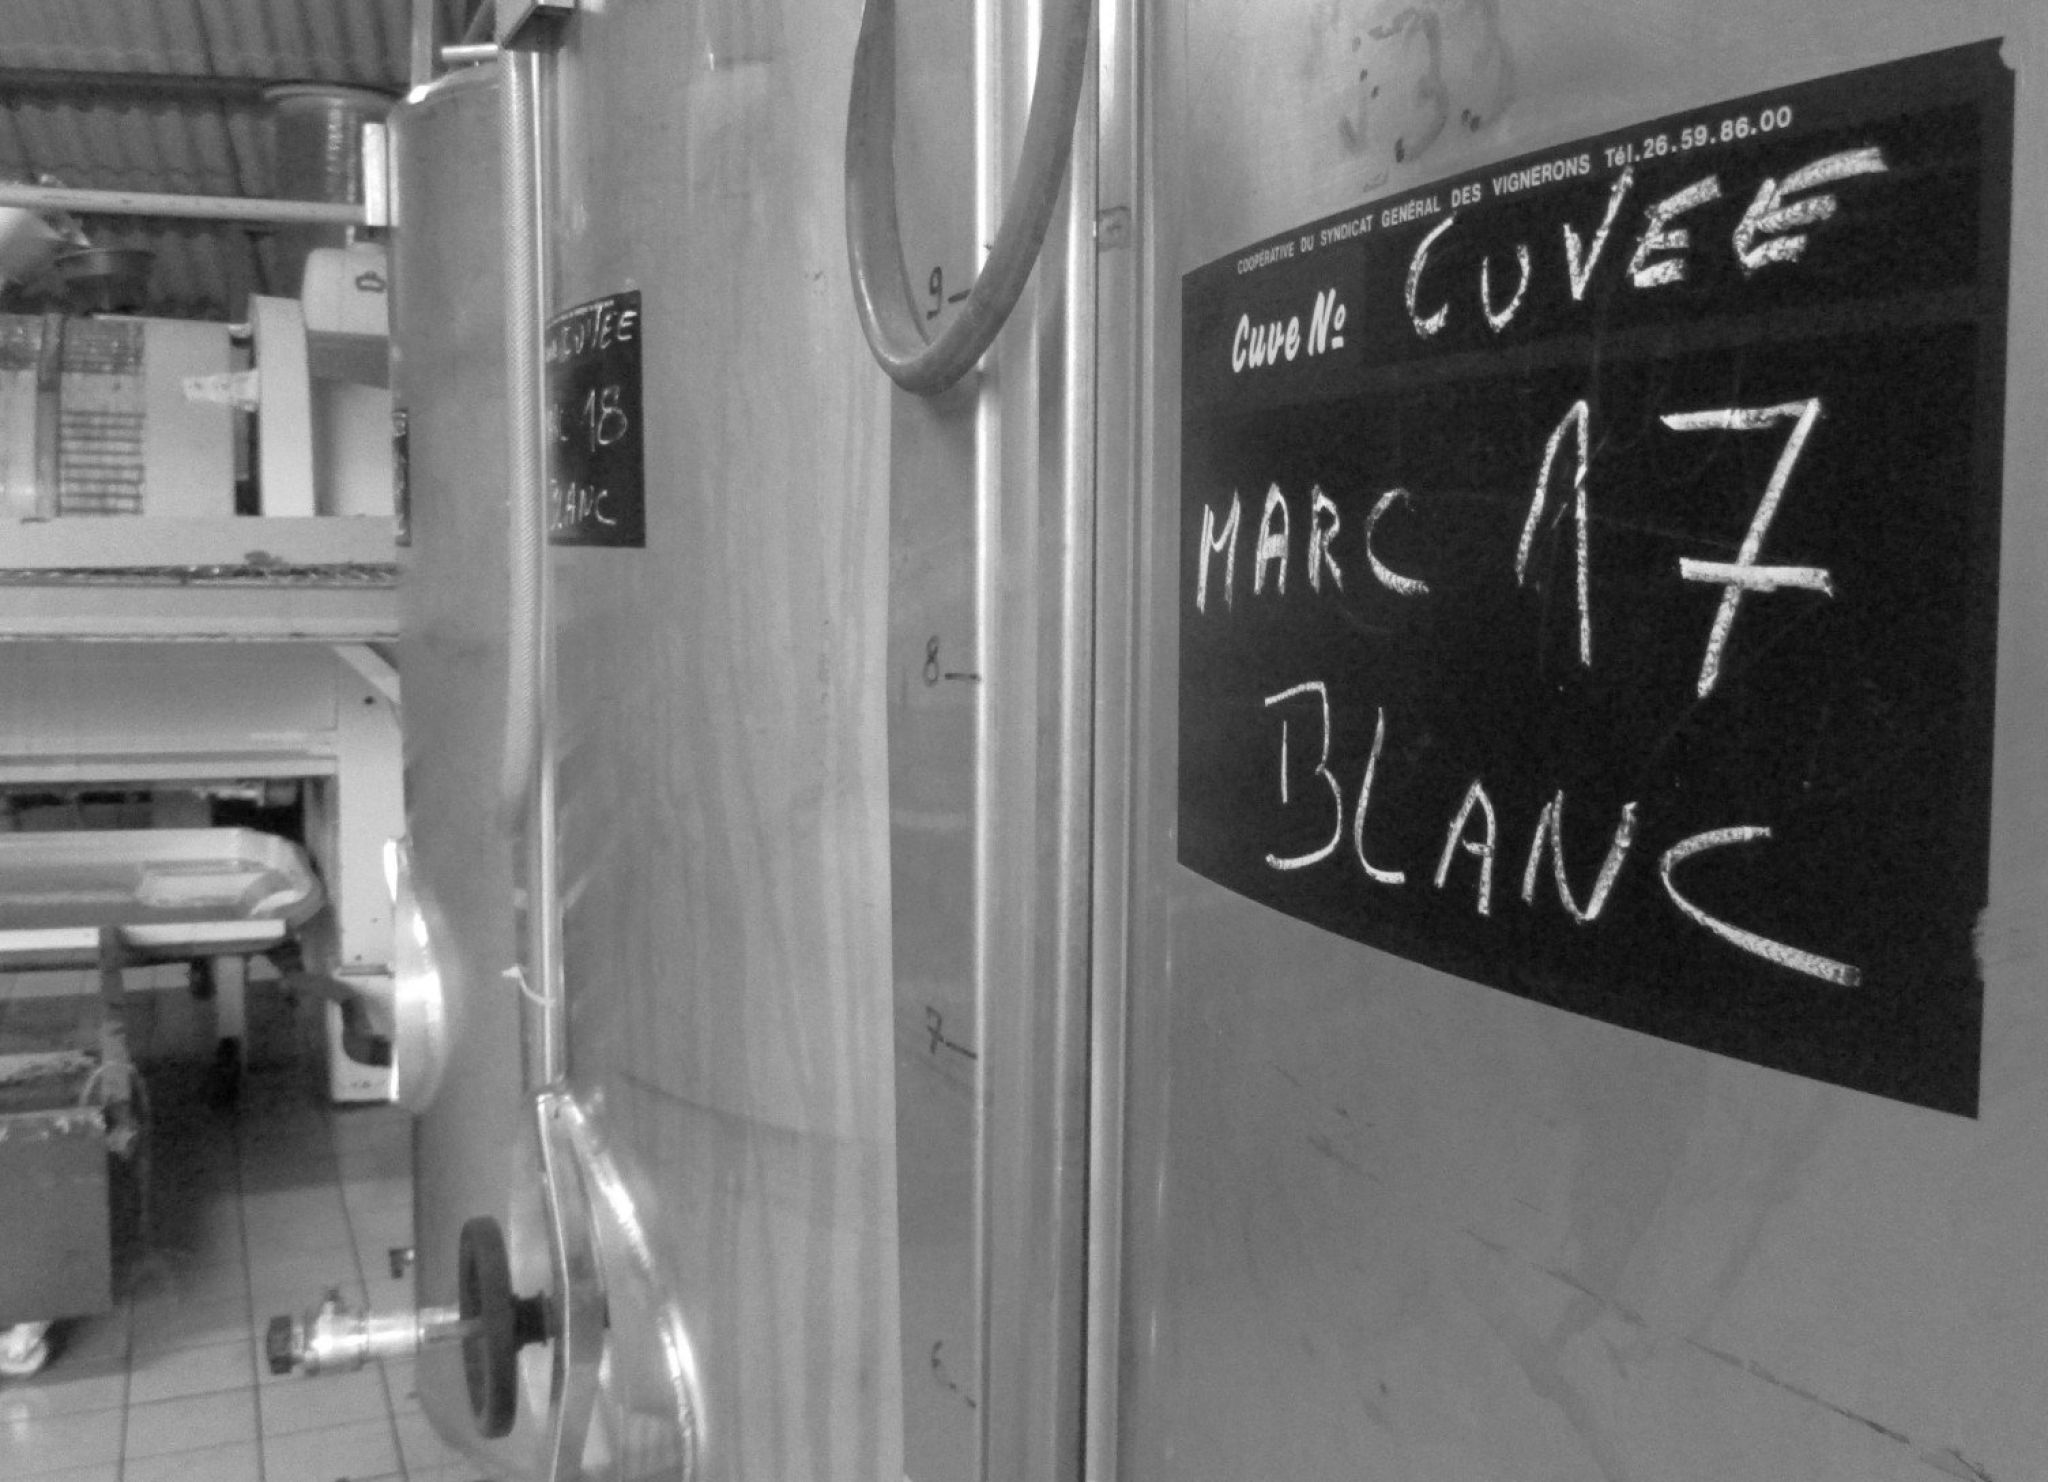 COOPÉRATIVE DU SYNDICAT GENÉRAL DES VIGNERONS Tél.26.59.86.00
Cuve Nº CUVEE
MARC 17
BLANC
CUVEE
18
BLANC
9
8
7